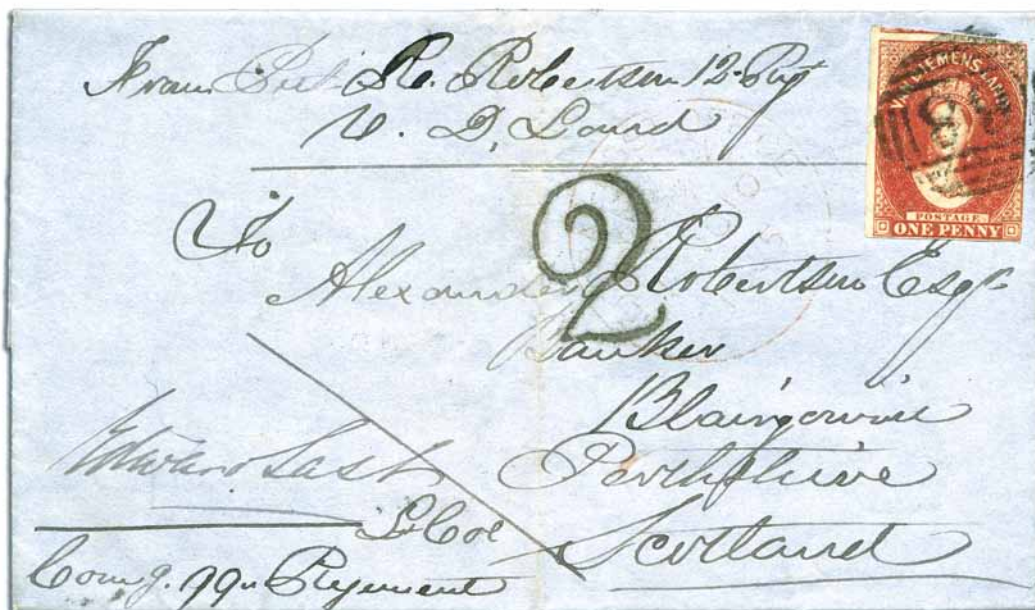 From Prt. R. Robertson 12 Regt
V. D. Land
VAN DIEMENS LAND
POSTAGE
ONE PENNY
2
To
Alexander Robertson Esqr
Banker
Blairgowrie
Perthshire
Scotland
Edward Last
Lt Col
Comg. 99th Regiment